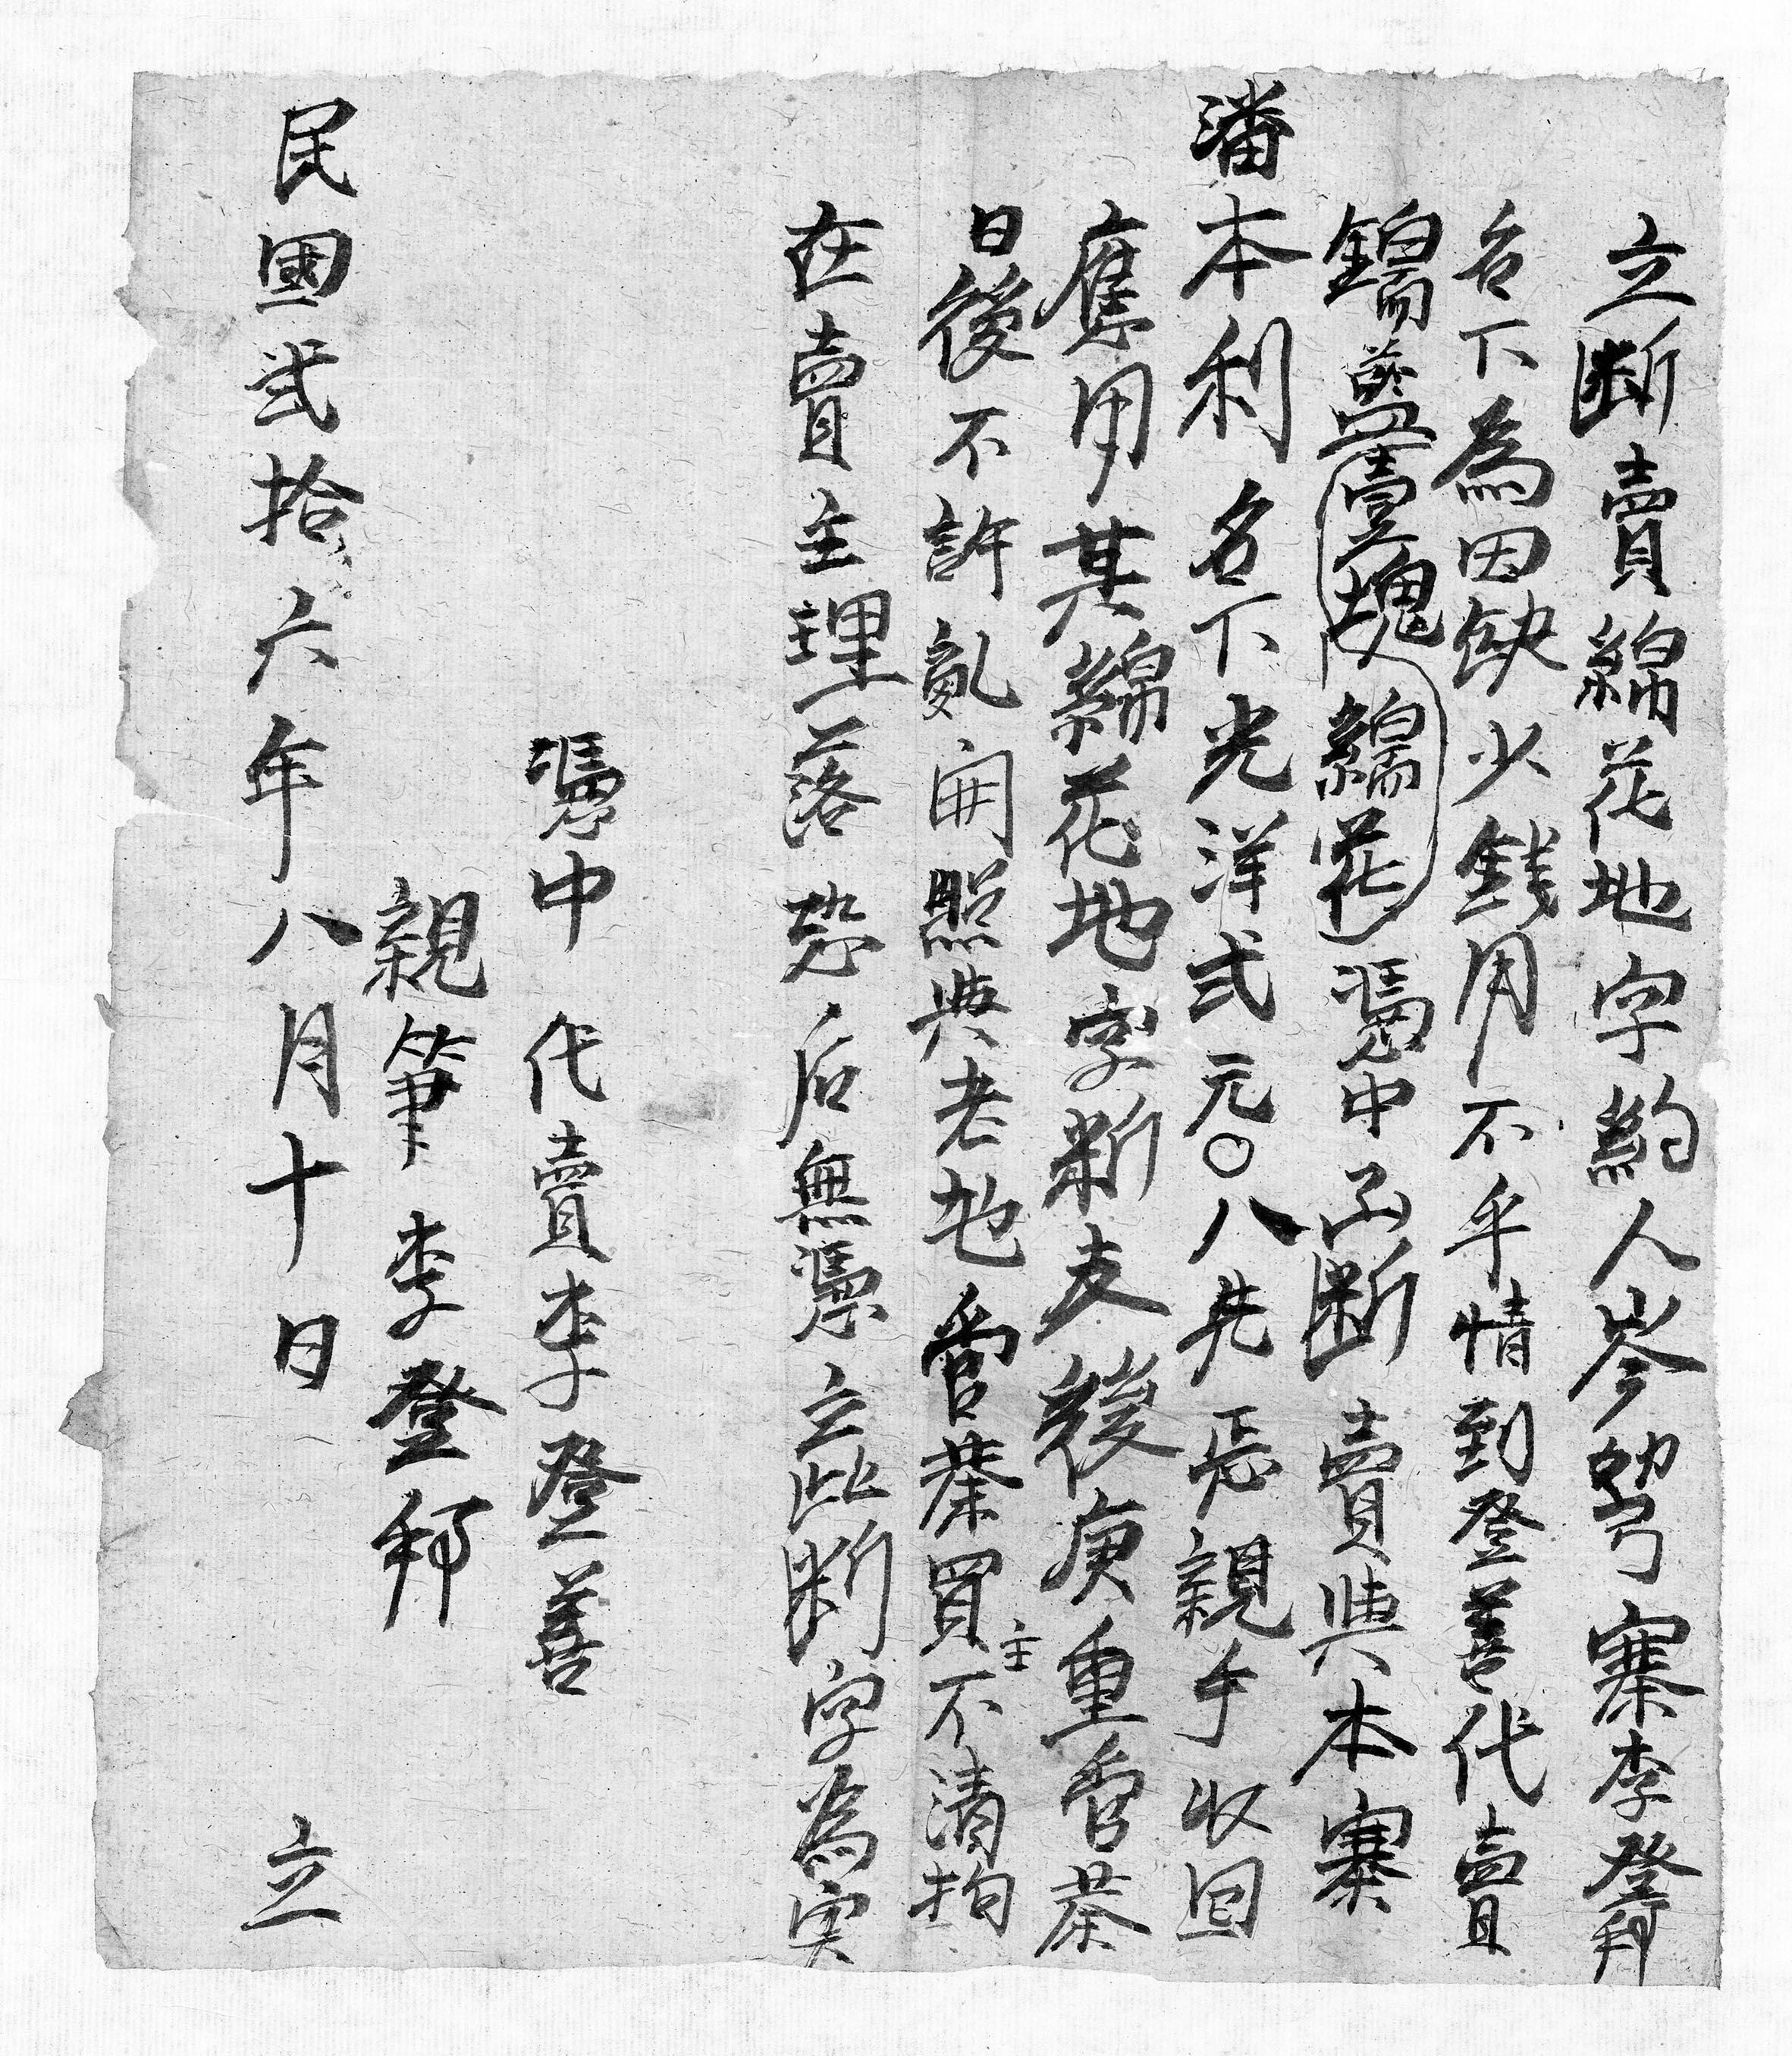 立断賣綿花地字約人岑努寨李登邦
名下為因缺少錢用不乎情到登善代賣
錦藍壹塊綿花憑中正断賣與本寨
潘本利名下光洋弍元〇八先忘親手収回
應用其綿花地字断支後庚重管業
日後不許亂開照典老地管業買主不清拘
在賣主理落恐后無憑立此断字為実
憑中 代賣李登善
親筆 李登邦
民國弐拾六年八月十日 立